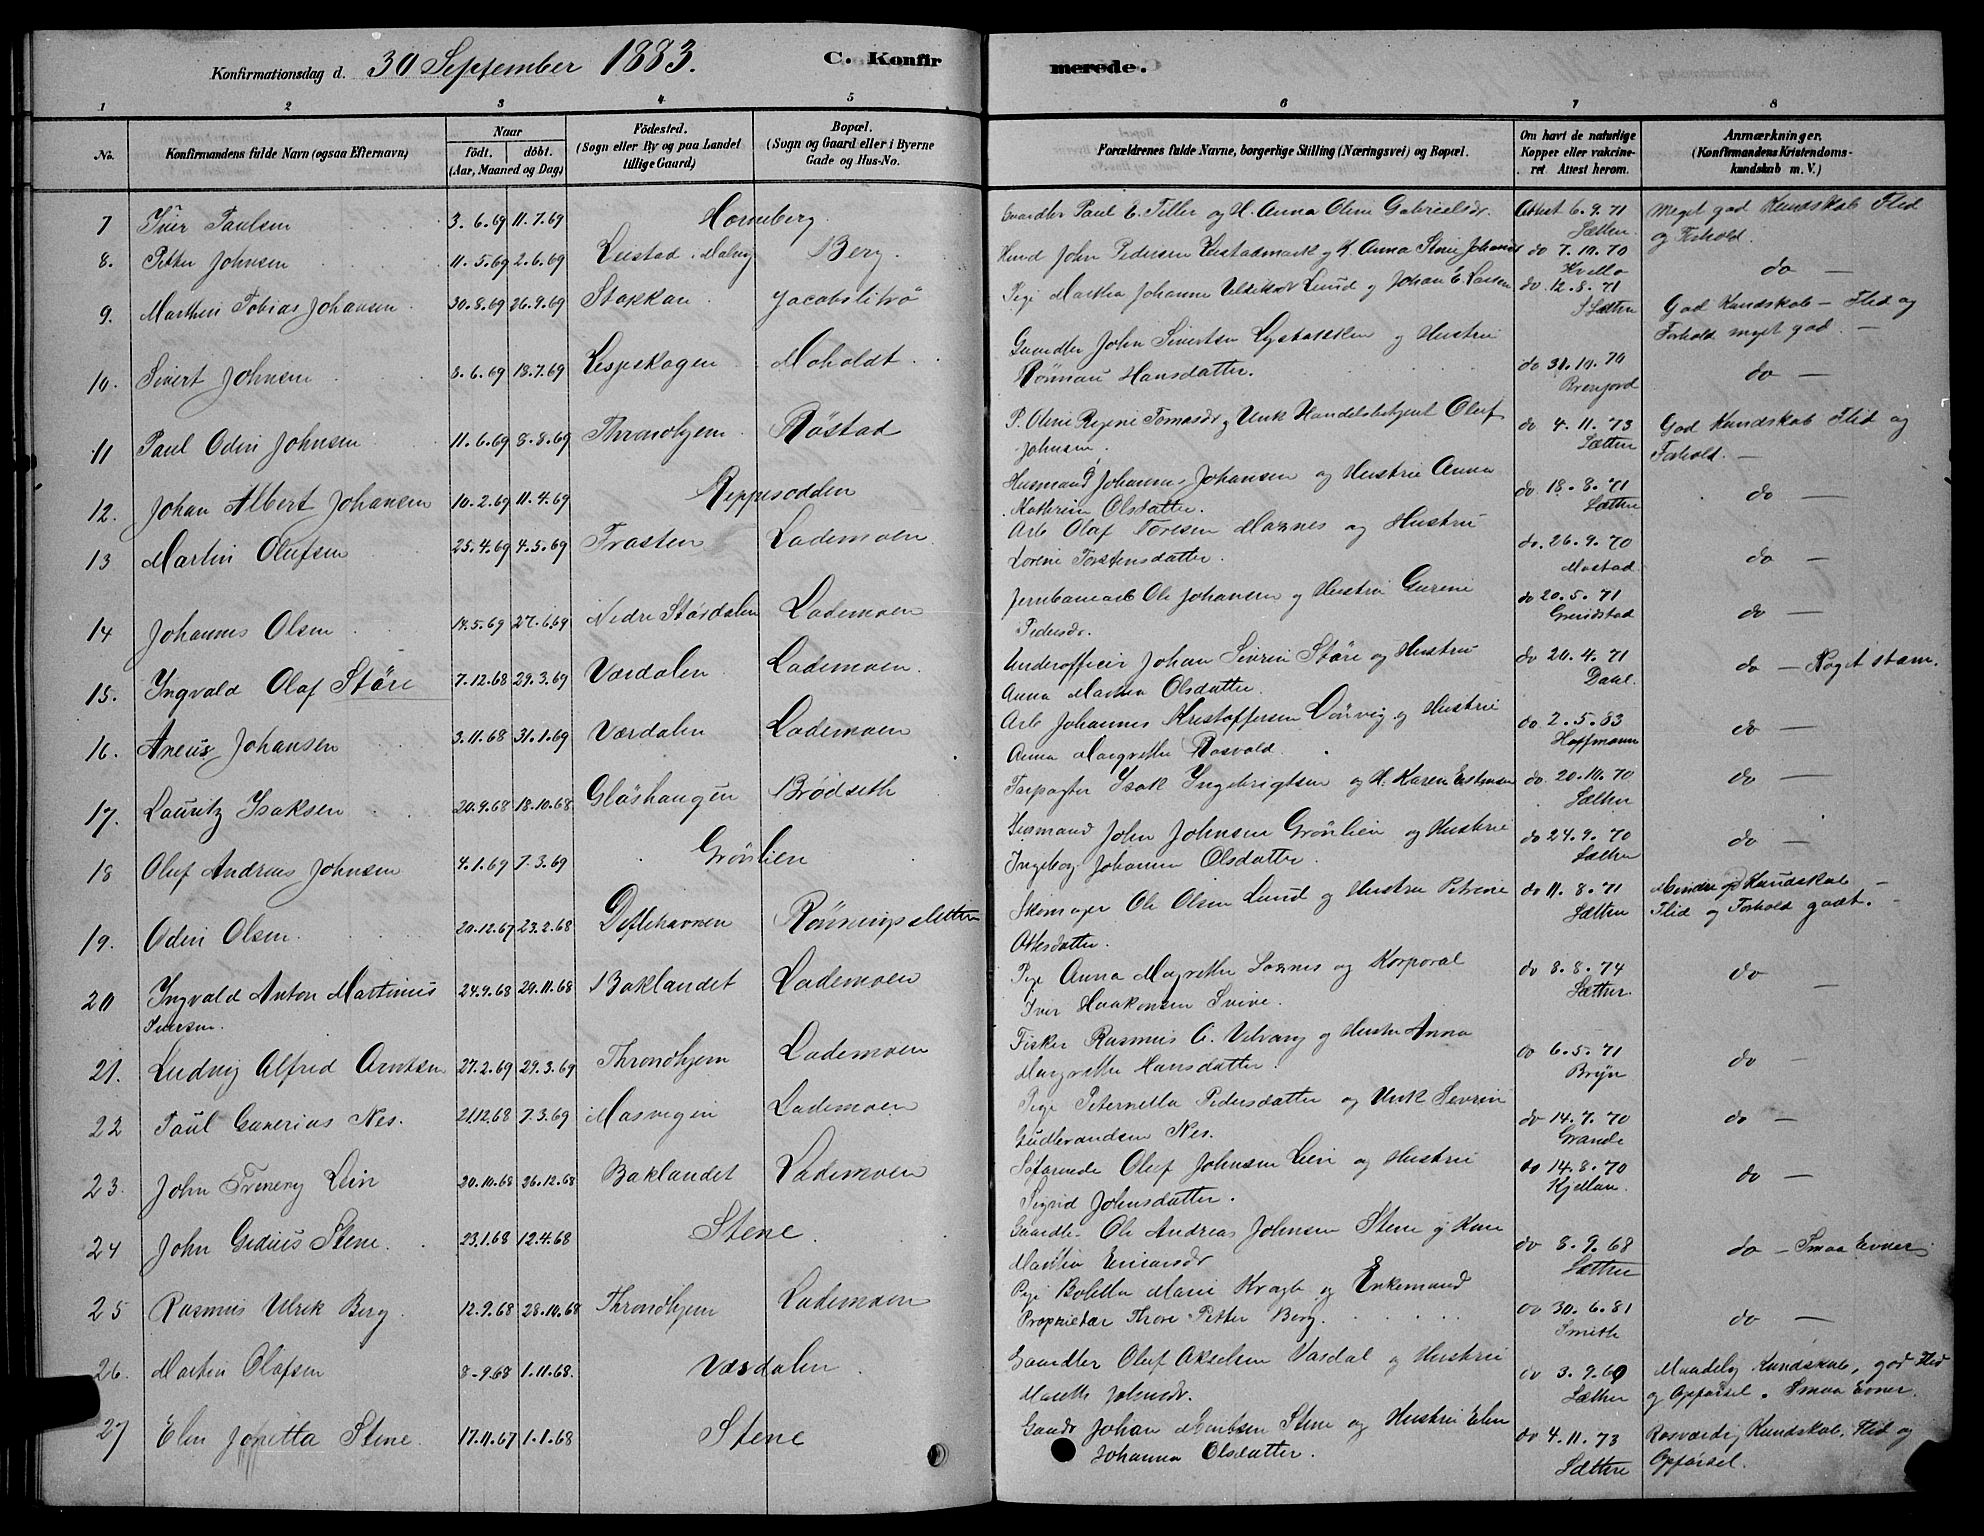 Konfirmationsdag d. 30 September 1883. C. Konfirmerede.
1 2 3 4 5 6 7 8
No. Konfirmandens fulde Navn (ogsaa Efternavn) Naar födt. döbt. (Aar, Maaned og Dag) Födested. (Sogn eller By og paa Landet tillige Gaard) Bopæl. (Sogn og Gaard eller i Byerne Gade og Hus-No. Forældrenes fulde Navne, borgerlige Stilling (Næringsvei) og Bopæl. Om havt de naturlige Kopper eller vakcineret. Attest herom. Anmærkninger. (Konfirmandens Kristendomskundskab m. V.)
7 Iver Paulsen 3.6.69 11.7.69 Horneberg Gaardbr Paul E. Tiller og H. Anna Oline Gabrielsdr. Attest 6.9.71 Sæther Meget god Kundskab Flid og Forhold.
8. Petter Johnsen 11.5.69 2.6.69 Leistad. Malvig Berg. John Pedersen Leistadmark og K. Anna Stine do 7.10.70 Kvello do —
9. Marthin Tobias Johansen 30.8.69 26.9.69 Stokkan Jacobslitrø Pige Martha Johanna Lund og Johan E. Larsen do. 12.8.71 Sæther God Kundskab — Flid og Forhold meget god. —
10. Sivert Johnsen 3.6.69 18.7.69 Lespskagen Moholdt Gaardbr John Sivertsen og Hustru
Rönnau Hansdatter. do 31.10.70 do —
11 Paul Odin Johnsen 11.6.69 8.8.69 Throndhjem Røstad P. Oline Regine Tomasdr og Unk Handelsbetjent Oluf
Johnsen. do 4.11.73 Sæther God Kundskab Flid og Forhold. —
12. Johan Albert Johansen 10.2.69 11.4.69 Reppesodden Husmand Johannes Johansen og Hustru Anna
Kathrine Olsdatter. do 18.8.71 Sæther do —
13 Martin Olufsen 25.4.69 4.5.69 Frosten Lademoen Arb Olaf Toresen Moxnes og Hustru
Lorene Torstensdatter. do. 26.9.70 Mostad do —
14 Johannes Olsen 14.5.69 27.6.69 Nedre Stördalen Lademoen Jernbanearb Ole Johansen og Hustru Gurine
Pedersdr. do 20.5.71 Grindstad do —
15. Ingvald Olaf Störe 7.12.68 29.3.69 Værdalen Lademoen. Underofficer Johan Sivrin Störe og Hustru
Anna Martha Olsdatter. do 20.4.71 Daal. do — Noget stam.
16. Aneus Johansen 3.11.68 31.1.69 Værdalen Lademoen Arb Johannes Kristoffersen og Hustru
Anna Margrethe Rosvold. do 2.5.83 Hoffmann do —
17. Lauritz Isaksen 20.9.68 18.10.68 Glöshaugen Brödseth Isak Ingebrigtsen og H. Karen Estensen do 20.10.70 Sæther do —
18 Oluf Andreas Johnsen 4.1.69 7.3.69 Grönlien Husmand John Johnsen Grönlien og Hustru
Ingeborg Johanna Olsdatter. do 24.9.70 Sæther do —
19. Odin Olsen. 20.12.67 23.2.68 Devlehavnen Rönningsletten Skomager Ole Olsen Lund og Hustru Petrine
Ottesdatter. do 11.8.71 Sæther Mindre god Kundskab — Flid og Forhold godt. —
20 Ingvald Anton Martinus Iversen. 24.9.68 29.11.68 Baklandet Lademoen Pige Anna Margrethe Soxnes og Korporal
Iver Haakonsen Svive. do 8.8.74 Sæther. do —
21. Ludvig Alfred Arntsen 27.2.69 29.3.69 Throndhjem Lademoen Fisker Rasmus A. og Hustru Anna
Margrethe Hansdatter. do 6.5.71 Bryn do —
22 Paul Nes. 21.12.68 7.3.69 Masvegin Lademoen Pige Peternella Pedersdatter og Unk Sevrin
Gudbrandsen Nes. do 14.7.70 Grande do —
23. John Lein 20.10.68 26.12.68 Baklandet Lademoen Oluf Johnsen Lein og Hustru
Sigrid Johnsdatter. do 14.8.70 do —
24 John Gedius Stene. 23.1.68 12.4.68 Stene. Gaardbr. Ole Andreas Johnsen Stene og
do 8.9.68 Sæther do — Smaa Evner
25 Rasmus Ulrik Berg. 12.9.68 28.10.68 Throndhjem Lademoen Pige Boletta Marie og Enkemand
Proprietær Thore Petter Berg. do 30.6.81 Smith do —
26. Martin Olafsen 8.9.68 1.11.68. Værdalen Gaardbr Oluf Akselsen Værdal og Hustru
Marethe Johnsdr. do 3.9.69 Sæther Maadelig Kundskab, god Flid og Opförsel. Smaa Evner.
27 Elen Jonetta Stene. 17.11.67 1.1.68 Stene Gaardbr Johan Stene og Hustru Elen
Johanna Olsdatter. do 4.11.73 Sæther Rosværdig Kundskab. Flid og Opförsel.